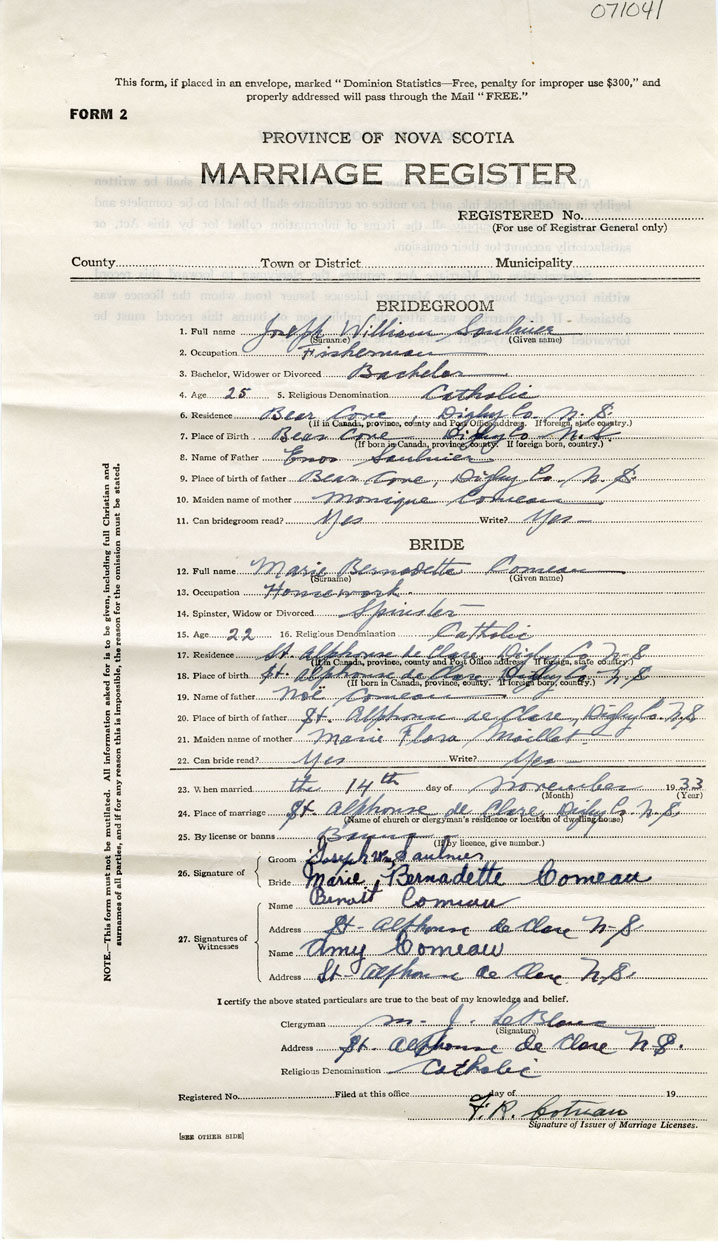 071041
This form, if placed in an envelope, marked "Dominion Statistics—Free, penalty for improper use $300," and
properly addressed will pass through the Mail "FREE."
FORM 2
PROVINCE OF NOVA SCOTIA
MARRIAGE REGISTER
REGISTERED No.
(For use of Registrar General only)
County Town or District Municipality
BRIDEGROOM
1. Full name Joseph William Saulnier
(Surname) (Given name)
2. Occupation Fisherman
3. Bachelor, Widower or Divorced Bachelor
4. Age 25 5. Religious Denomination Catholic
6. Residence Bear Cove, Digby Co. N. S.
(If in Canada, province, county and Post Office address. If foreign, state country.)
7. Place of Birth Bear Cove Digby Co N. S.
(If born in Canada, province, county. If foreign born, country.)
8. Name of Father Enos Saulnier
9. Place of birth of father Bear Cove, Digby Co. N. S.
10. Maiden name of mother Monique Comeau
11. Can bridegroom read? Yes Write? Yes
BRIDE
12. Full name Marie Bernadette Comeau
(Surname) (Given name)
13. Occupation Homework
14. Spinster, Widow or Divorced Spinster
15. Age 22 16. Religious Denomination Catholic
17. Residence St. Alphonse de Clare, Digby Co N-S
(If in Canada, province, county and Post Office address. If foreign, state country.)
18. Place of birth St. Alphonse de Clare, Digby Co. N S
(If born in Canada, province, county. If foreign born, country.)
19. Name of father Noë Comeau
20. Place of birth of father St. Alphonse de Clare, Digby Co. N.S
21. Maiden name of mother Marie Flora Maillet
22. Can bride read? Yes Write? Yes
23. When married the 14th day of November 1933
(Month) (Year)
24. Place of marriage St. Alphonse de Clare, Digby Co. N. S.
(Name of church or clergyman's residence or location of dwelling house)
25. By license or banns Banns
(If by licence, give number.)
26. Signature of
Groom Joseph Wm Saulnier
Bride Marie Bernadette Comeau
27. Signatures of Witnesses
Name Benoit Comeau
Address St- Alphonse de Clare N-S
Name Amy Comeau
Address St- Alphonse de Clare N.S.
I certify the above stated particulars are true to the best of my knowledge and belief.
Clergyman M. J. LeBlanc
(Signature)
Address St. Alphonse de Clare N. S.
Religious Denomination Catholic
Registered No. Filed at this office day of 19
F. R.
Signature of Issuer of Marriage Licenses.
[SEE OTHER SIDE]
NOTE.—This form must not be mutilated. All information asked for is to be given, including full Christian and
surnames of all parties, and if for any reason this is impossible, the reason for the omission must be stated.